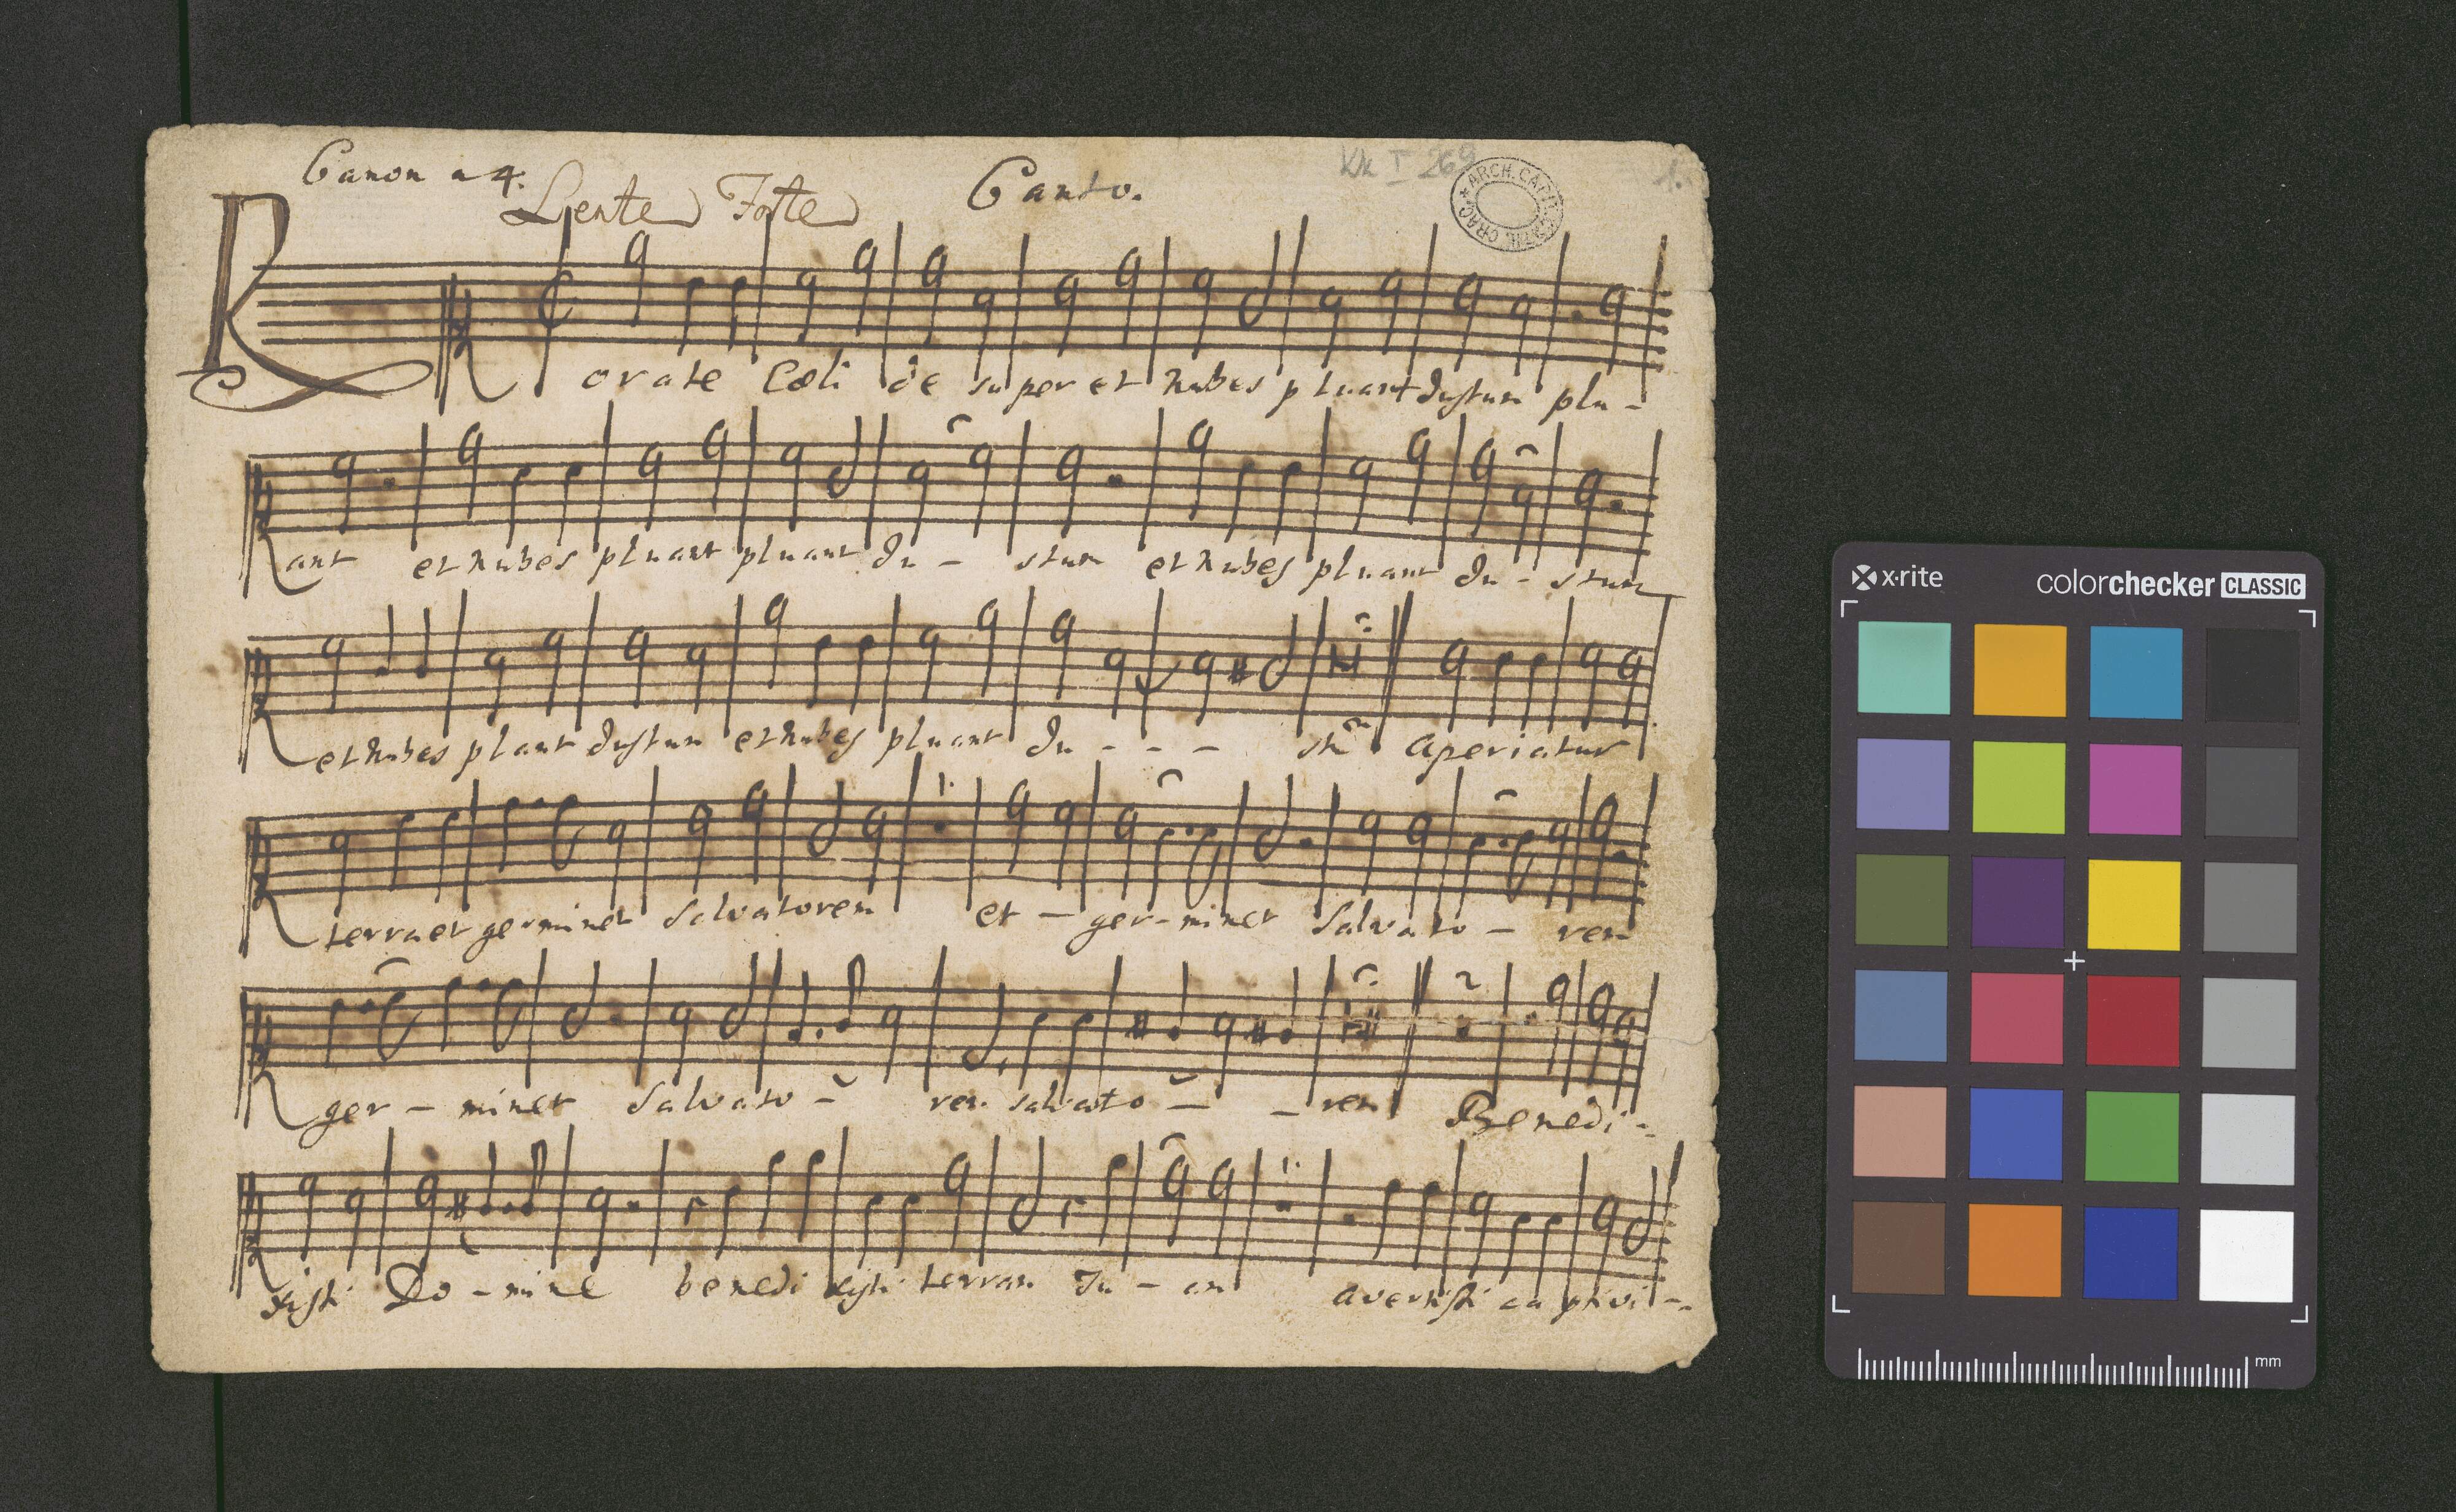 Canon a 4. Lente Forte Canto. Kk I 269 1.
ARCH. CAPIT. CATH. CRAC.
Rorate Cœli de super et nubes pluant Justum plu-
ant et nubes pluant pluant Ju - stum et nubes pluant Ju - stum
et nubes pluant Justum et nubes pluant Ju - - - stũ Aperiatur
terra et germinet Salvatorem et - ger-minet Salvato - rem
ger - minet Salvato - rem salvato - - rem Benedi-
xisti Do - mine benedixisti terram Tu - am avertisti captivi -
x·rite colorchecker CLASSIC
mm